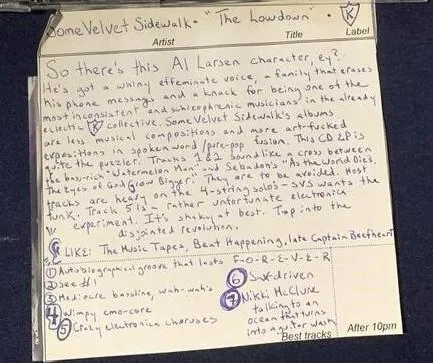 Some Velvet Sidewalk • "The Lowdown" • K
Artist Title Label
So there's this Al Larsen character, ey?
He's got a whiny effeminate voice, a family that erases
his phone messages and a knack for being one of the
most inconsistent and schizophrenic musicians in the already
eclectic K collective. Some Velvet Sidewalk's albums
are less musical compositions and more art-fucked
expositions in spoken word/pure-pop fusion. This CD EP is
quite the puzzler. Tracks 1&2 sound like a cross between
the bass-rich "Watermelon Man" and Sebadoh's "As the World Dies,
The Eyes of God Grow Bigger." They are to be avoided. Most
tracks are heavy on the 4-string solo's - SVS wants the
funk. Track 5 is a rather unfortunate electronica
experiment. It's shaky at best. Tap into the
disjointed revolution.
LIKE: The Music Tapes, Beat Happening, late Captain Beefheart
① Autobiographical groove that lasts F-O-R-E-V-E-R
② See #1
③ Mediocre bassline, wah-wah's
④ Wimpy emo-core
⑤ Crazy electronica choruses
⑥ Sax-driven
⑦ Nikki McClure
talking to an
ocean that turns
into a guitar wash
Best tracks After 10pm